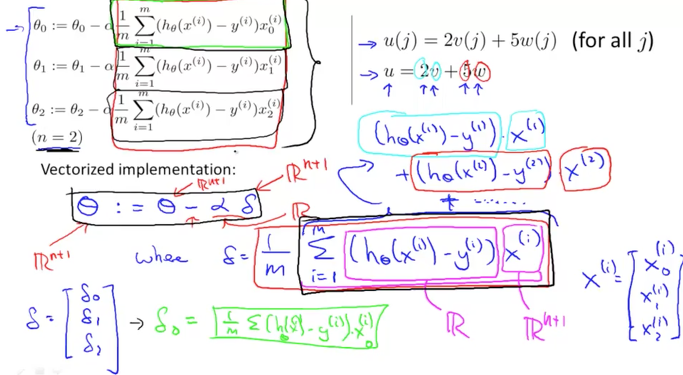 θ₀ := θ₀ − α 1/m ∑_{i=1}^{m} (h_θ(x^{(i)}) − y^{(i)}) x₀^{(i)}
θ₁ := θ₁ − α 1/m ∑_{i=1}^{m} (h_θ(x^{(i)}) − y^{(i)}) x₁^{(i)}
θ₂ := θ₂ − α 1/m ∑_{i=1}^{m} (h_θ(x^{(i)}) − y^{(i)}) x₂^{(i)}
(n = 2)
→ u(j) = 2v(j) + 5w(j) (for all j)
→ u = 2v + 5w
↑ ↑↑ ↑↑
(h_θ(x^{(1)}) − y^{(1)}) · x^{(1)}
+ (h_θ(x^{(2)}) − y^{(2)}) · x^{(2)}
+ ......
Vectorized implementation:
ℝ^{n+1} ℝ^{n+1}
θ := θ − α δ
ℝ^{n+1} ℝ
where δ = 1/m ∑_{i=1}^{m} (h_θ(x^{(i)}) − y^{(i)}) x^{(i)}
ℝ ℝ^{n+1}
x^{(i)} = [x₀^{(i)} x₁^{(i)} x₂^{(i)}]
δ = [δ₀ δ₁ δ₂] → δ₀ = 1/m ∑ (h_θ(x^{(i)}) − y^{(i)}) · x₀^{(i)}